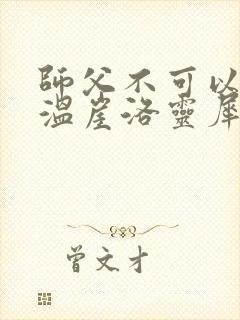 師父不可以
溫崖洛靈犀
曾文才